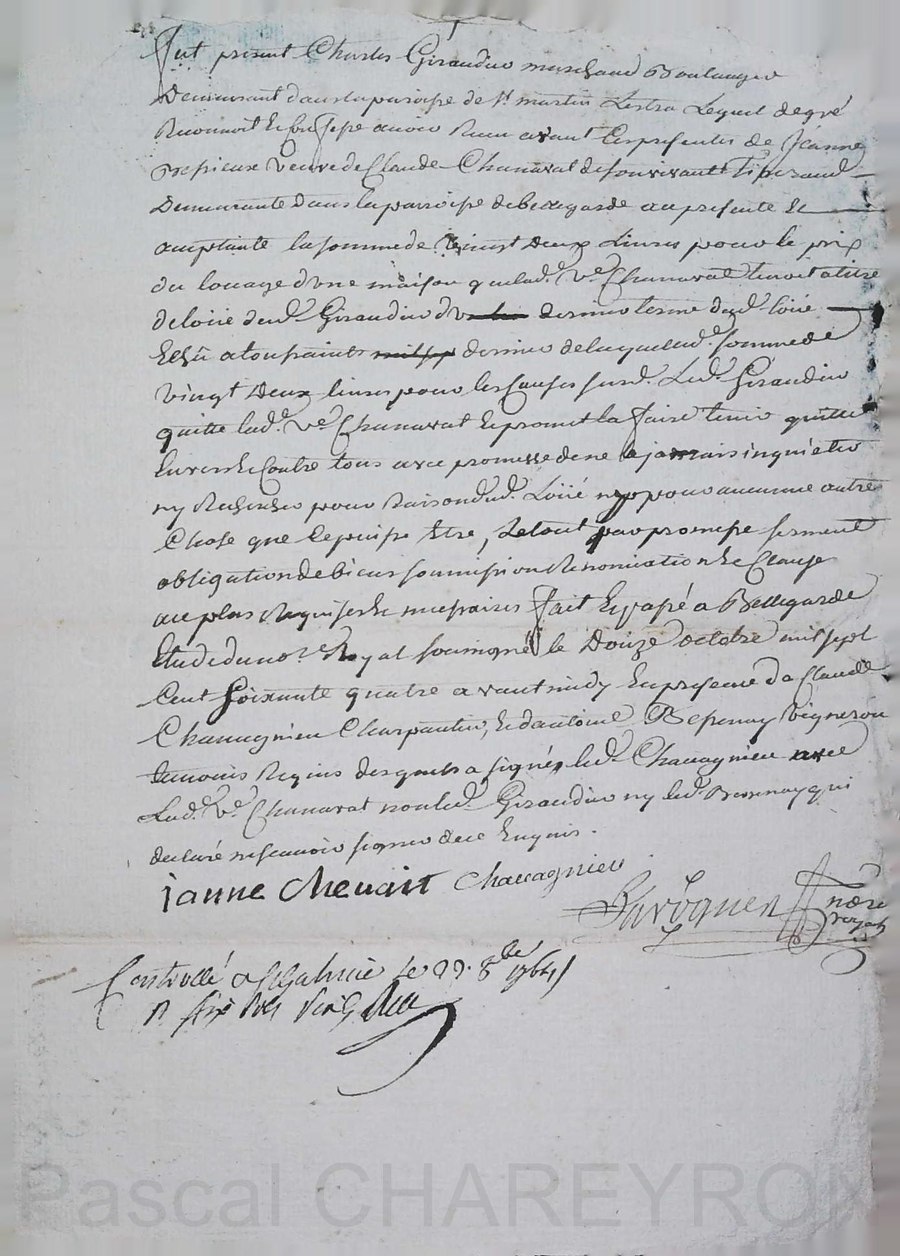 Fut present Charles Giraudier marchand Boulanger
Demeurant dans la paroisse de St martin Lestra Lequel de gré
Reconnoit & Confesse avoir Receu avant Les presentes de Jeanne
veuve de Claude Chanavat de son vivant Tisserand
Demeurante dans la paroisse de bellegarde cy presente &
acceptante la somme de vingt Deux Livres pour le prix
du louage d'une maison que lad.e v.e Chanavat tenoit a titre
de loüé dud. Giraudier dernier terme dud. loüé
Echû a toussaints dernier de laquelle d.e somme de
vingt Deux livres pour les Causes susd. Led. Giraudier
quitte lad.e v.e Chanavat & promet la faire tenir quitte
Envers & Contre tous avec promesse de ne jamais inquieter
ny Rechercher pour Raison dud. Loüé ny pour aucune autre
Chose que Ce puisse Etre, Le tout par promesse serment
obligation de biens soumission Renonciation & Clause
au plus Requises & necessaires fait & passé a Bellegarde
Etude du no.re Royal soussigné le Douze octobre mil sept
Cent Soixante quatre avant midy En presence de Claude
Chavagnieu Charpentier, & d'antoine Vigneron
temoins Requis desquels a signé led. Chavagnieu avec
Lad.e v.e Chanavat non led. Giraudier ny led. qui
declaré ne scavoir signer de ce Enquis.
ianne Chavagnieu
nore
royal
Controllé a le 22. 8bre 1764